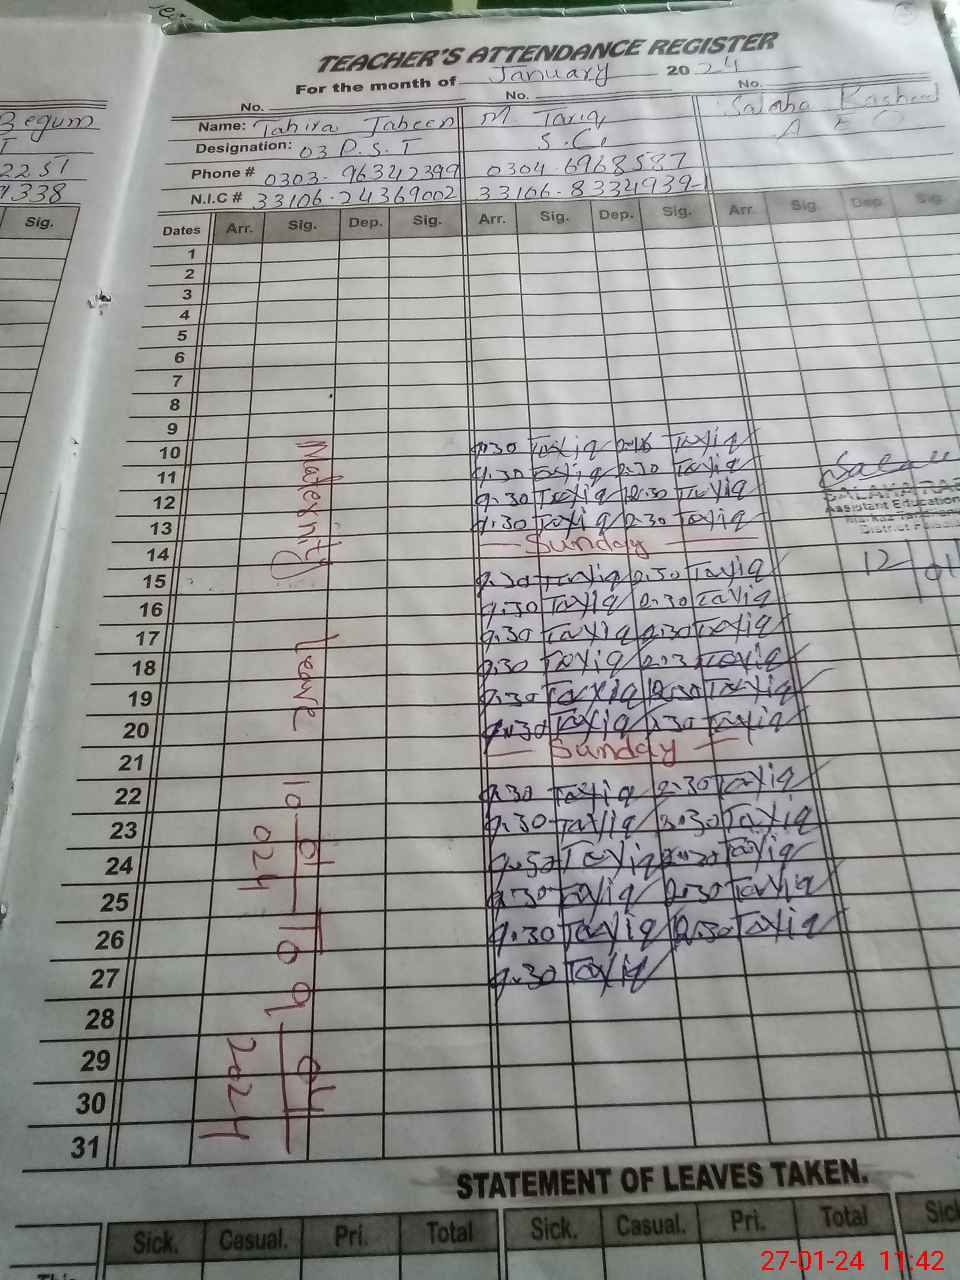 TEACHER'S ATTENDANCE REGISTER
For the month of January 2024
No. No. No.
Begum
2251
9338
Sig.
Name: Tahira Jabeen M Tariq
Designation: 03 P.S.T S.C.
Phone # 0303-96342399 0304-6968587
N.I.C # 33106-24369002 33106-8334939-1
Dates Arr. Sig. Dep. Sig. Arr. Sig. Dep. Sig. Arr. Sig. Dep. Sig.
1
2
3
4
5
6
7
8
9
10 9.30 Tariq Tariq
11 9.30 Tariq 2.30 Tariq
12 9.30 Tariq 12.30 Tariq
13 9.30 Tariq 2.30 Tariq
14 Sunday
15 9.30 Tariq 2.30 Tariq
16 9.30 Tariq 2.30 Tariq
17 9.30 Tariq 2.30 Tariq
18 9.30 Tariq 2.3 Tariq
19 9.30 Tariq 12.30 Tariq
20 9.30 Tariq 2.30 Tariq
21 Sunday
22 9.30 Tariq 2.30 Tariq
23 9.30 Tariq 2.30 Tariq
24 9.30 Tariq 2.30 Tariq
25 9.30 Tariq 2.30 Tariq
26 9.30 Tariq 12.30 Tariq
27 9.30 Tariq
28
29
30
31
Maternity Leave 10-01-024 To 9-04-2024
Assistant Education
District
12/01
STATEMENT OF LEAVES TAKEN.
Sick. Casual. Pri. Total Sick. Casual. Pri. Total Sick
27-01-24 11:42